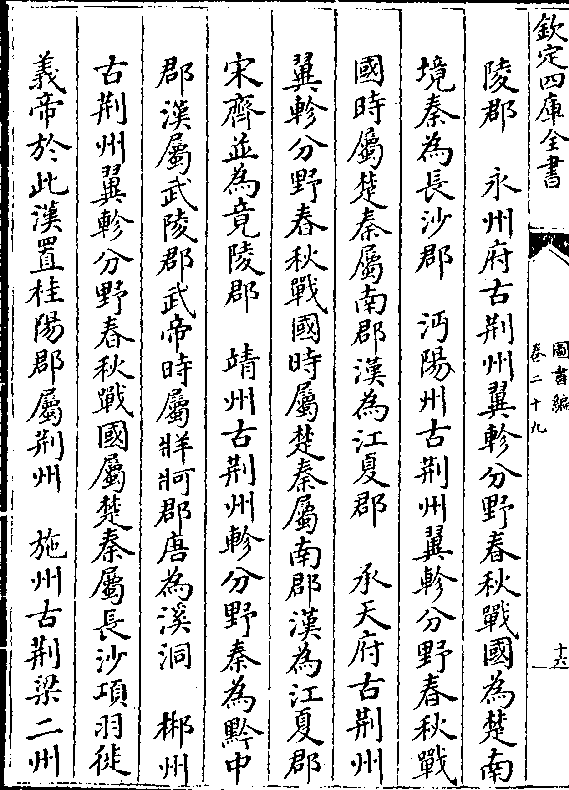 欽定四庫全書
圖書編
卷二十九
十六
陵郡　永州府古荆州翼軫分野春秋戰國為楚南
境秦為長沙郡　沔陽州古荆州翼軫分野春秋戰
國時屬楚秦屬南郡漢為江夏郡　承天府古荆州
翼軫分野春秋戰國時屬楚秦屬南郡漢為江夏郡
宋齊並為竟陵郡　靖州古荆州軫分野秦為黔中
郡漢屬武陵郡武帝時屬牂牁郡唐為溪洞　郴州
古荆州翼軫分野春秋戰國屬楚秦屬長沙項羽徙
義帝於此漢置桂陽郡屬荆州　施州古荆梁二州